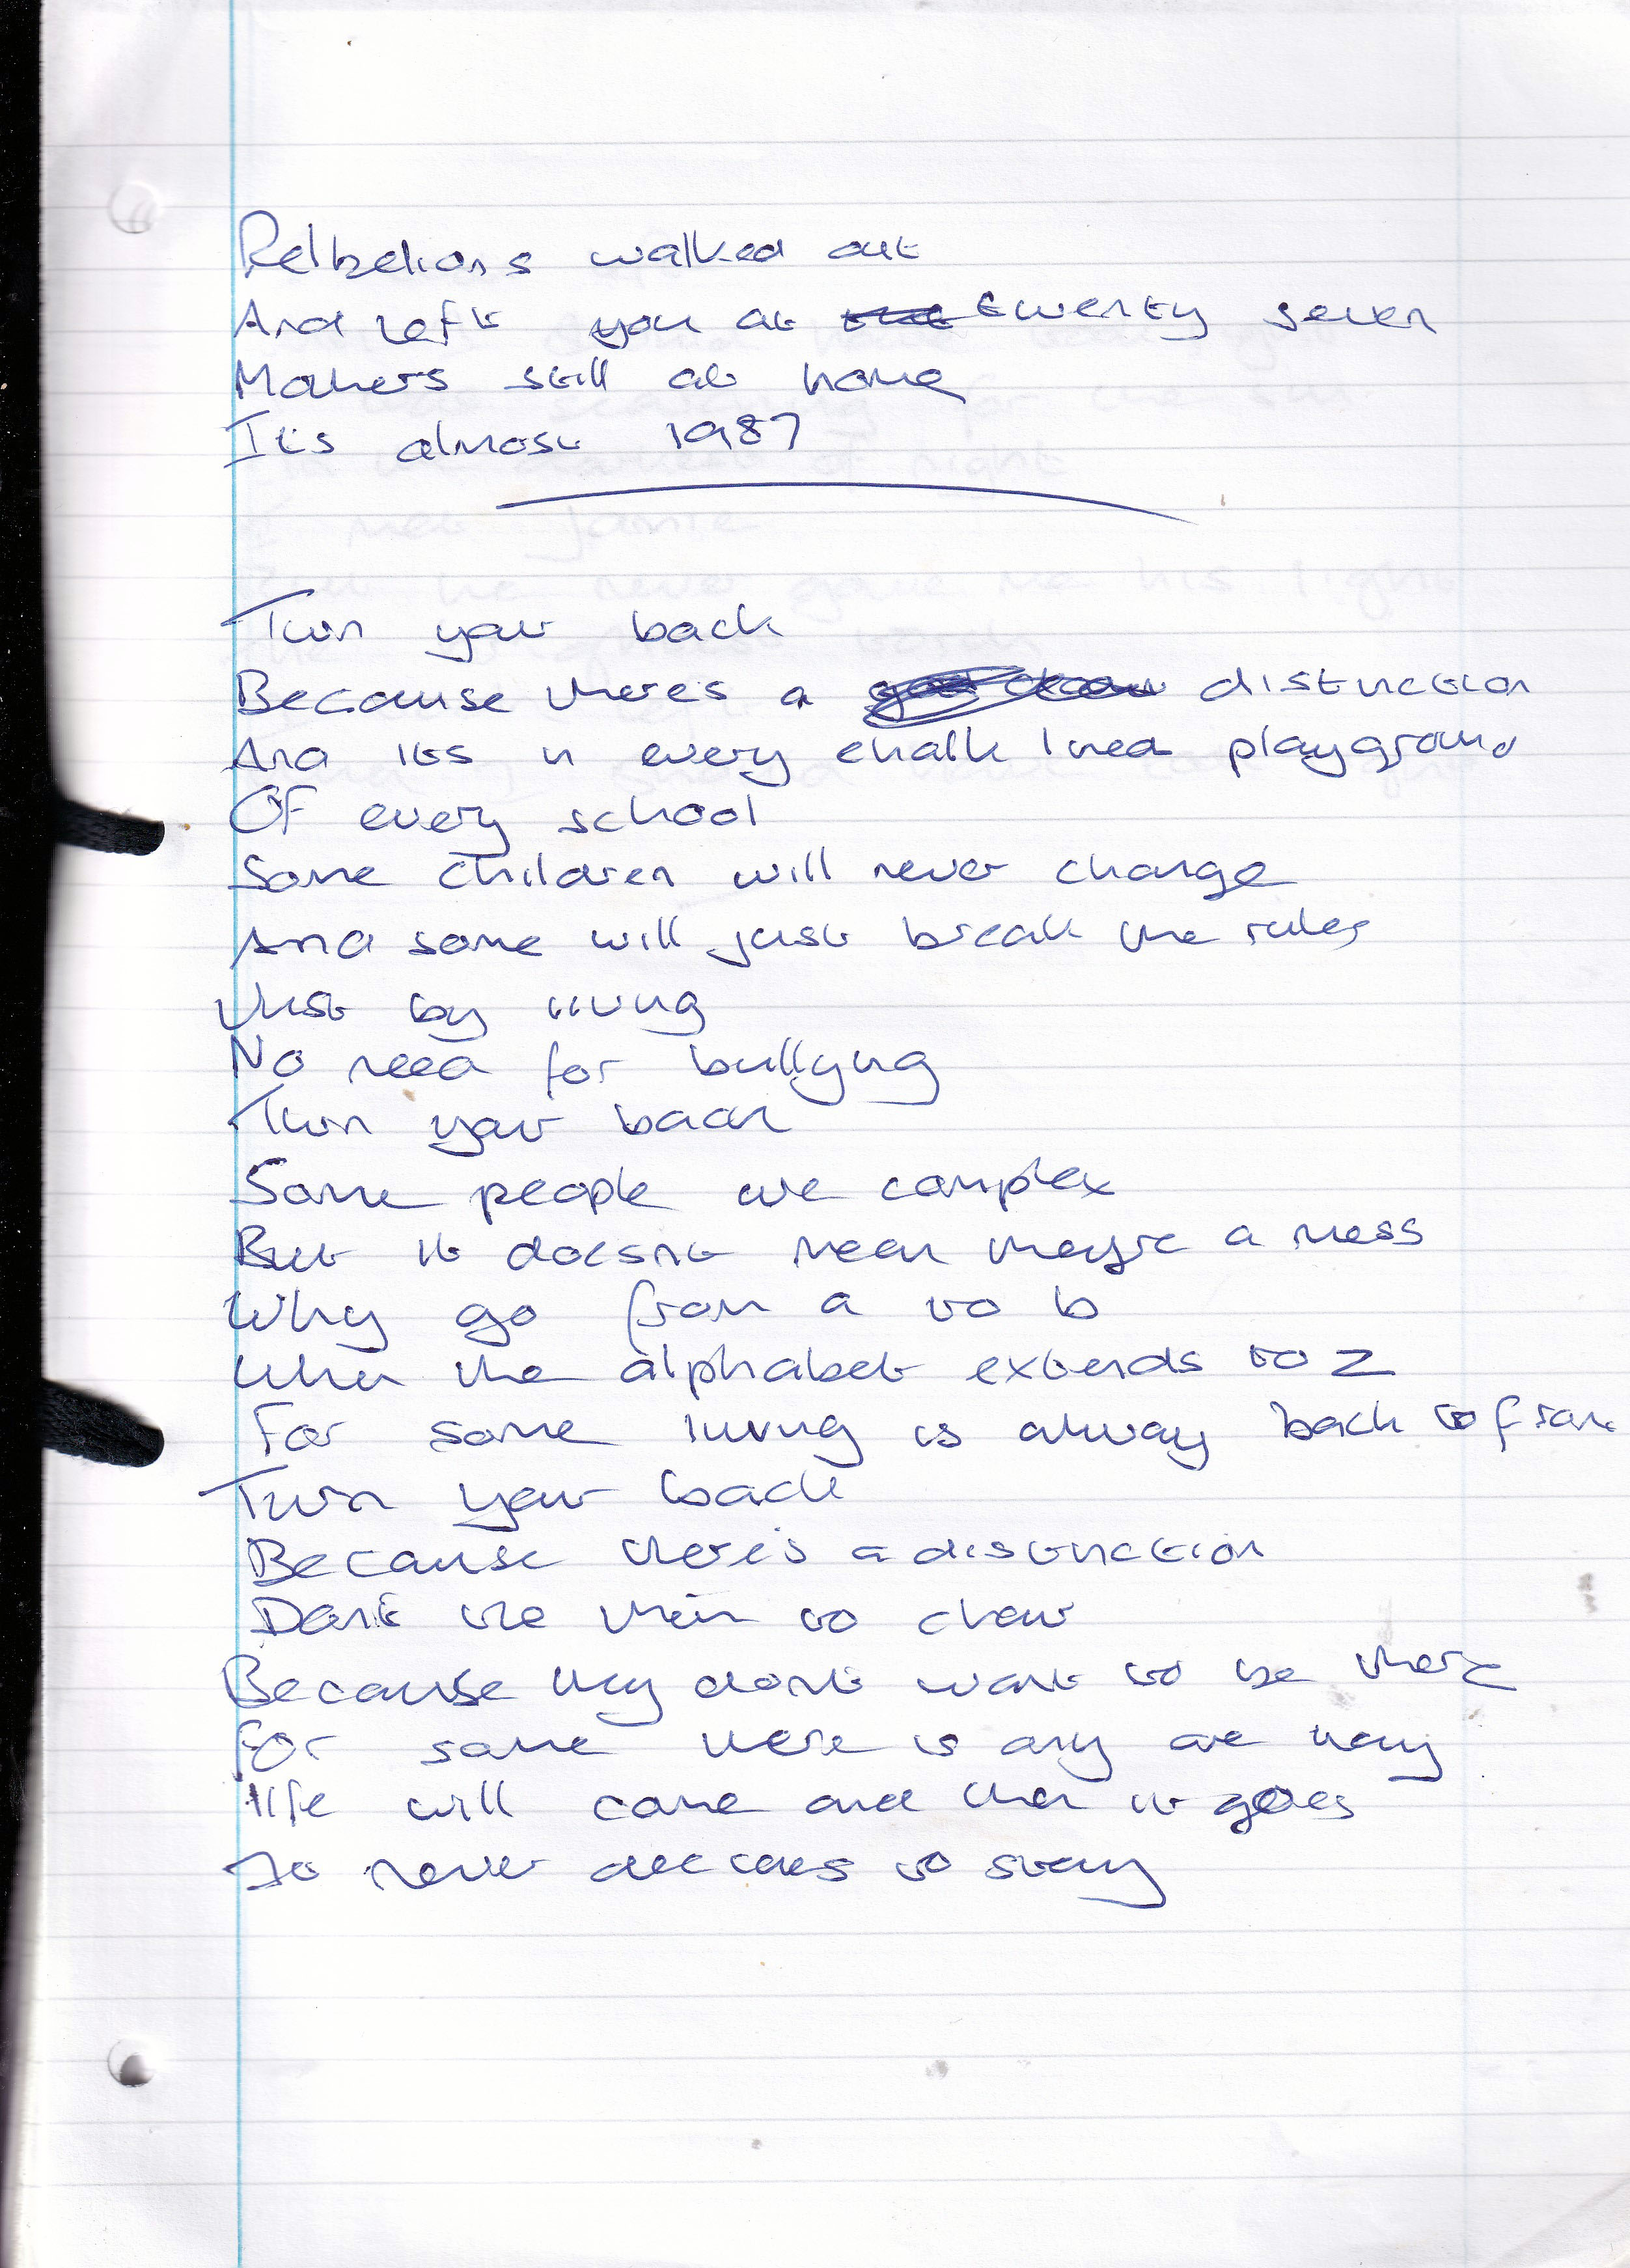 Relbelions walked out
And left you at twenty seven
Mothers still at home
It's almost 1987
Turn your back
Because there's a distinction
And its in every chalk lined playground
Of every school
Some children will never change
And some will just break the rules
Just by living
No need for bullying
Turn your back
Some people are complex
But it doesnt mean they're a mess
Why go from a to b
When the alphabet extends to z
For some living is always back to front
Turn your back
Because there's a distinction
Dont tie them to chair
Because they dont want to be there
For some there is any one way
life will come and then it goes
So never decides to stay